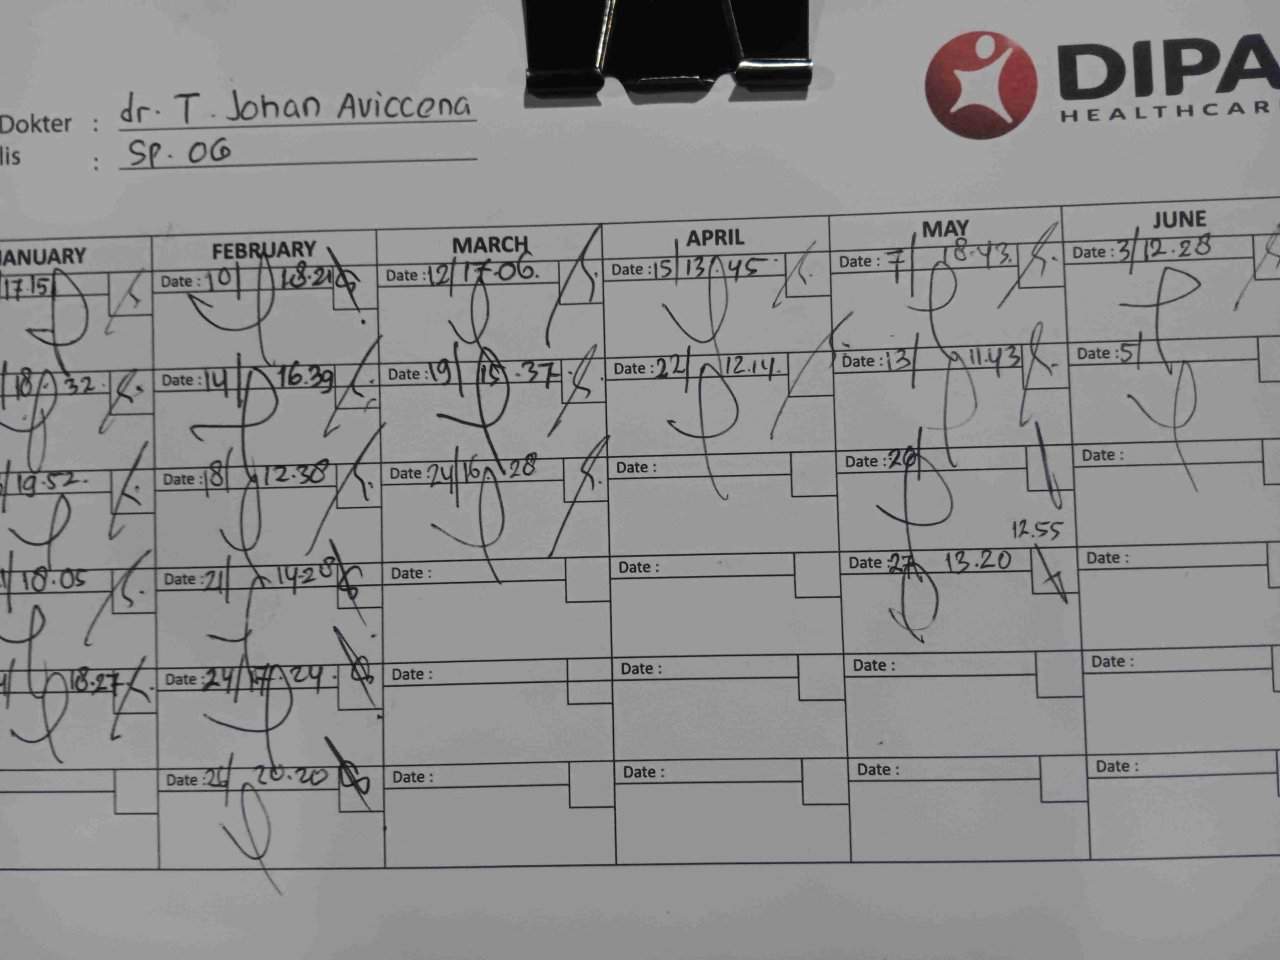 DIPA
HEALTHCAR
Dokter : dr. T. Johan Aviccena
lis : Sp. OG
ANUARY FEBRUARY MARCH APRIL MAY JUNE
17.15 Date : 10/ 18.21 Date : 12/ 17.06. Date : 15/ 13.45 Date : 7/ 18.43. Date : 3/ 12.28
/ 18.32. Date : 14/ 16.39 Date : 19/ 15.37 Date : 22/ 12.14. Date : 13/ 11.43 Date : 5/
/ 19.52. Date : 18/ 12.38 Date : 24/ 16.28 Date : Date : 20/ Date :
12.55
/ 18.05 Date : 21/ 14.28 Date : Date : Date : 27/ 13.20 Date :
/ 18.27 Date : 24/ 17.24. Date : Date : Date : Date :
Date : 26/ 20.20 Date : Date : Date : Date :